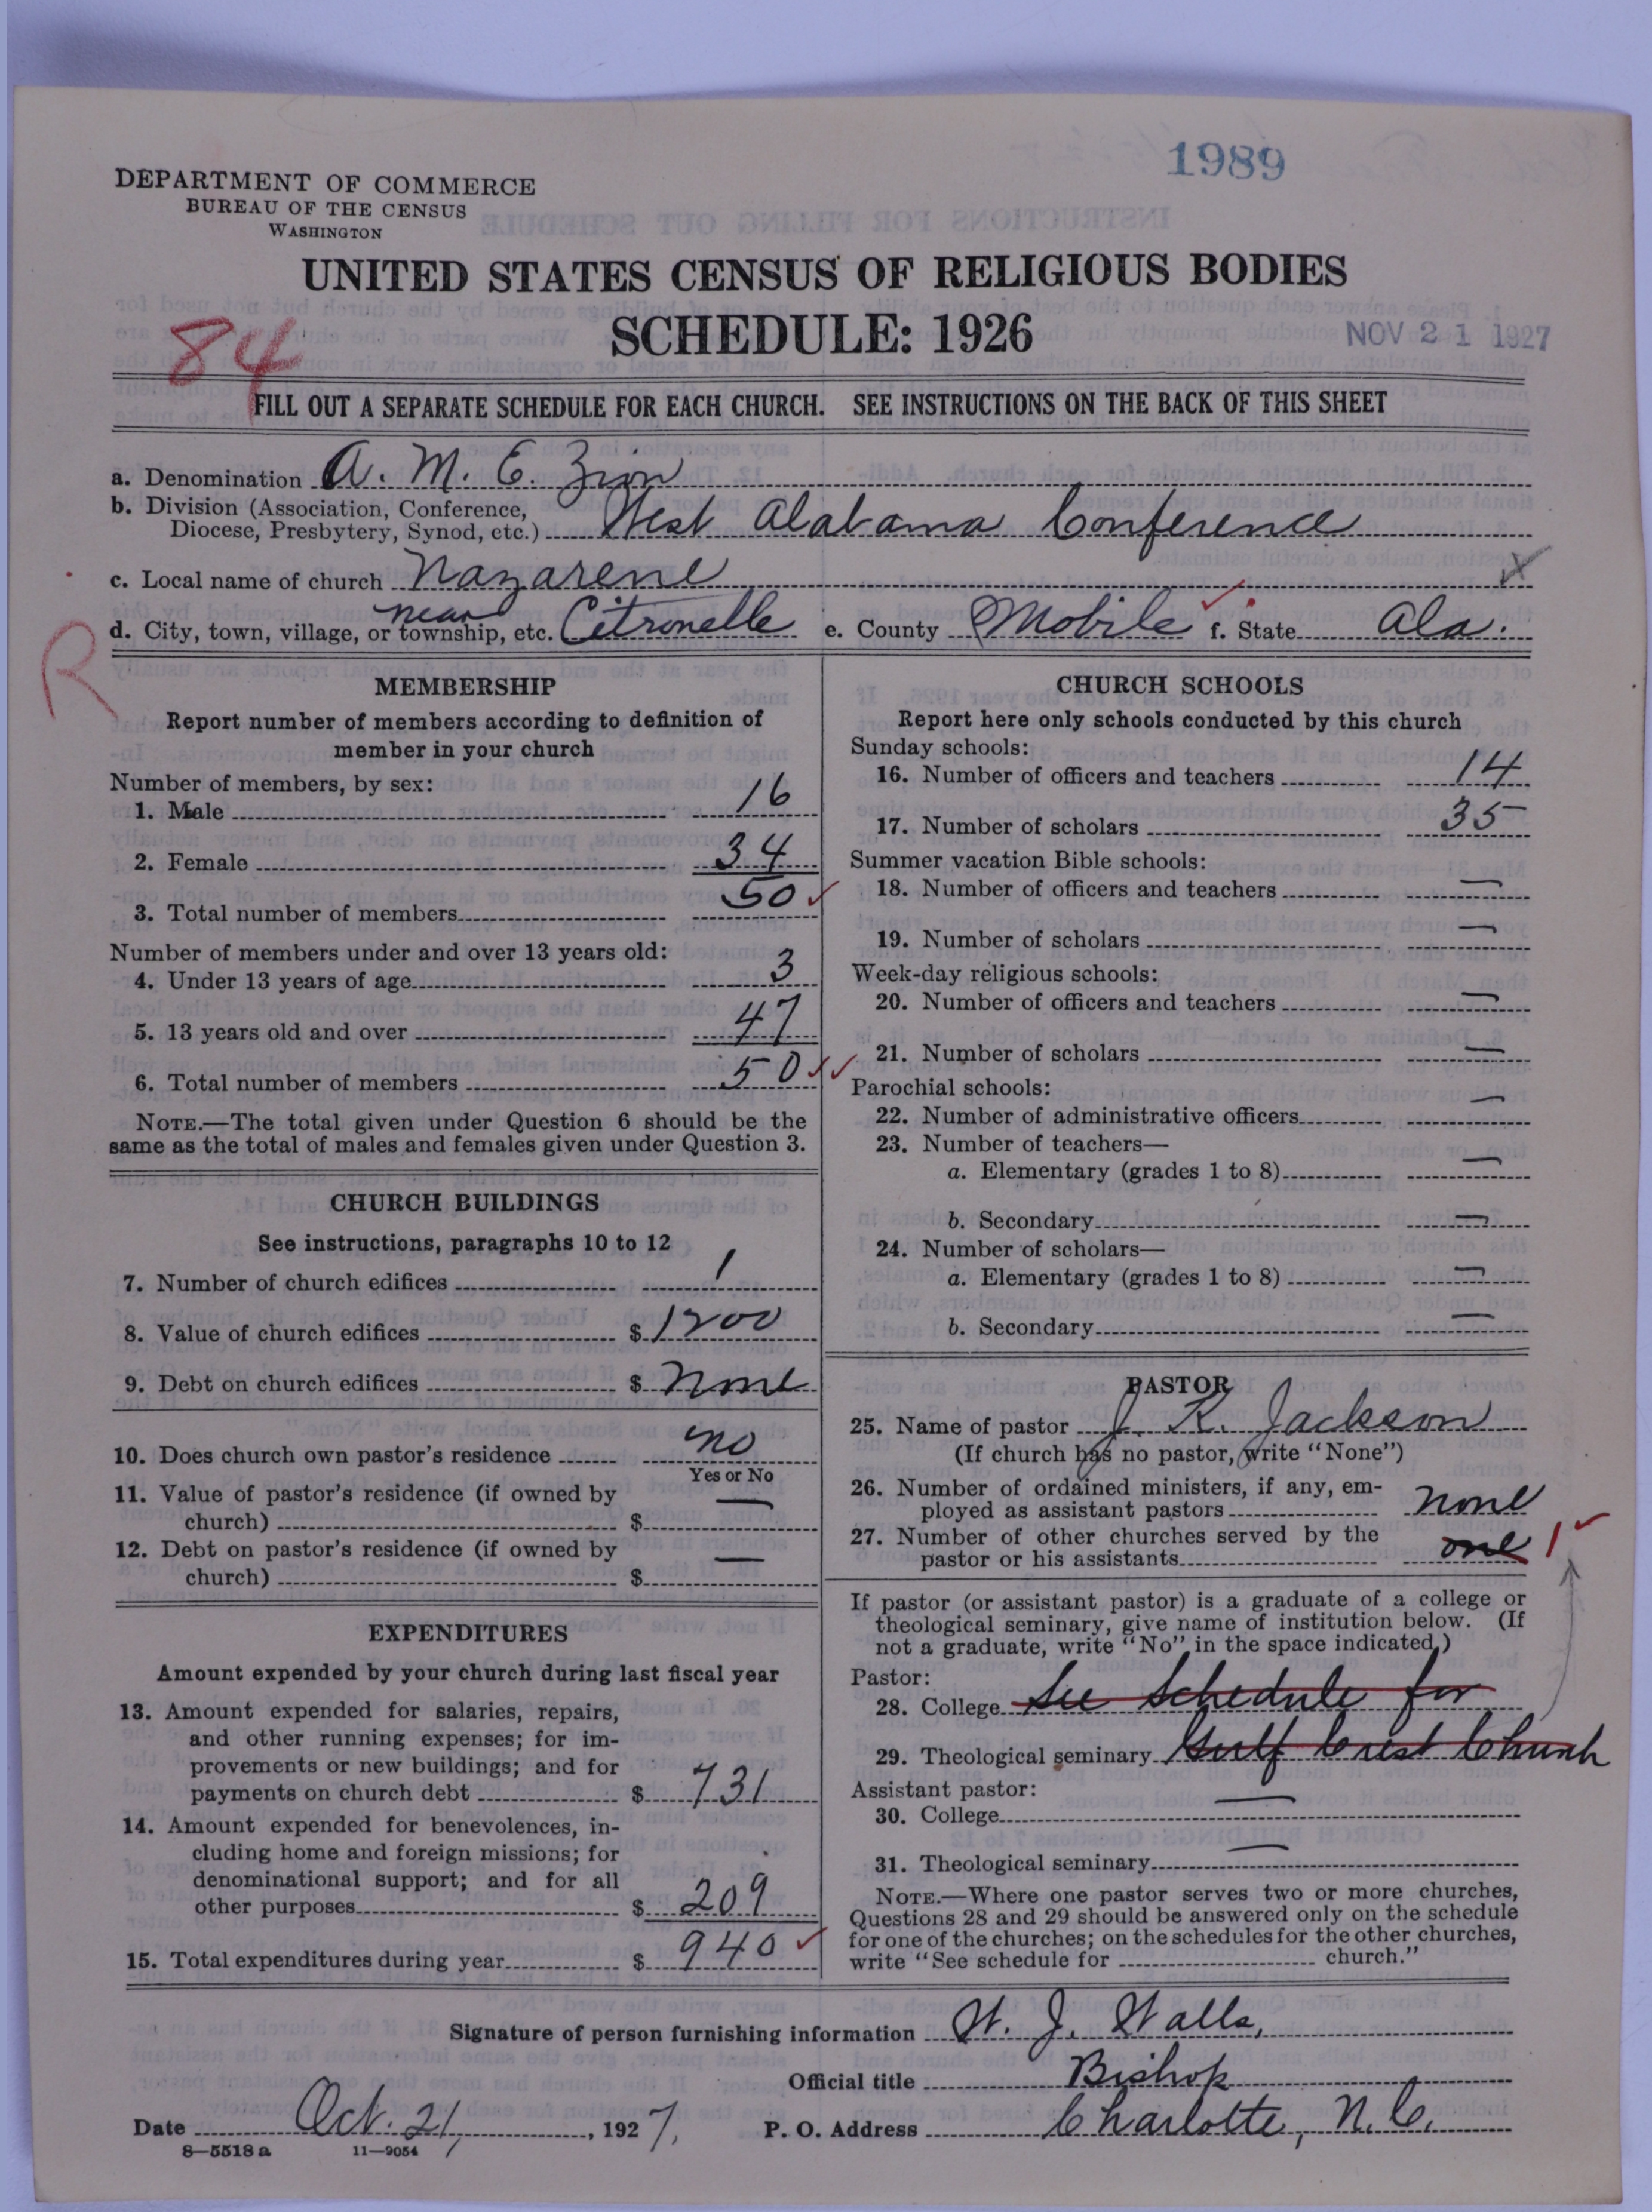 1989
DEPARTMENT OF COMMERCE
BUREAU OF THE CENSUS
WASHINGTON
UNITED STATES CENSUS OF RELIGIOUS BODIES
SCHEDULE: 1926
NOV 21 1927
84
FILL OUT A SEPARATE SCHEDULE FOR EACH CHURCH. SEE INSTRUCTIONS ON THE BACK OF THIS SHEET
a. Denomination A. M. E. Zion
b. Division (Association, Conference,
Diocese, Presbytery, Synod, etc.) West Alabama Conference
c. Local name of church Nazarene
d. City, town, village, or township, etc. near Citronelle e. County Mobile f. State Ala.
R
MEMBERSHIP
Report number of members according to definition of
member in your church
Number of members, by sex:
1. Male 16
2. Female 34
3. Total number of members 50
Number of members under and over 13 years old:
4. Under 13 years of age 3
5. 13 years old and over 47
6. Total number of members 50
NOTE.—The total given under Question 6 should be the
same as the total of males and females given under Question 3.
CHURCH BUILDINGS
See instructions, paragraphs 10 to 12
7. Number of church edifices 1
8. Value of church edifices $ 1200
9. Debt on church edifices $ none
10. Does church own pastor's residence no
Yes or No
11. Value of pastor's residence (if owned by
church) $ —
12. Debt on pastor's residence (if owned by
church) $ —
EXPENDITURES
Amount expended by your church during last fiscal year
13. Amount expended for salaries, repairs,
and other running expenses; for im-
provements or new buildings; and for
payments on church debt $ 731
14. Amount expended for benevolences, in-
cluding home and foreign missions; for
denominational support; and for all
other purposes $ 209
15. Total expenditures during year $ 940
CHURCH SCHOOLS
Report here only schools conducted by this church
Sunday schools:
16. Number of officers and teachers 14
17. Number of scholars 35
Summer vacation Bible schools:
18. Number of officers and teachers —
19. Number of scholars —
Week-day religious schools:
20. Number of officers and teachers —
21. Number of scholars —
Parochial schools:
22. Number of administrative officers —
23. Number of teachers—
a. Elementary (grades 1 to 8) —
b. Secondary —
24. Number of scholars—
a. Elementary (grades 1 to 8) —
b. Secondary —
PASTOR
25. Name of pastor J. R. Jackson
(If church has no pastor, write "None")
26. Number of ordained ministers, if any, em-
ployed as assistant pastors none
27. Number of other churches served by the
pastor or his assistants one 1
If pastor (or assistant pastor) is a graduate of a college or
theological seminary, give name of institution below. (If
not a graduate, write "No" in the space indicated.)
Pastor:
28. College See Schedule for
29. Theological seminary Gulf Crest Church
Assistant pastor:
30. College —
31. Theological seminary —
NOTE.—Where one pastor serves two or more churches,
Questions 28 and 29 should be answered only on the schedule
for one of the churches; on the schedules for the other churches,
write "See schedule for ---------- church."
Signature of person furnishing information W. J. Walls,
Official title Bishop
Date Oct. 21, 1927, P. O. Address Charlotte, N.C.
8—5518a 11—9054